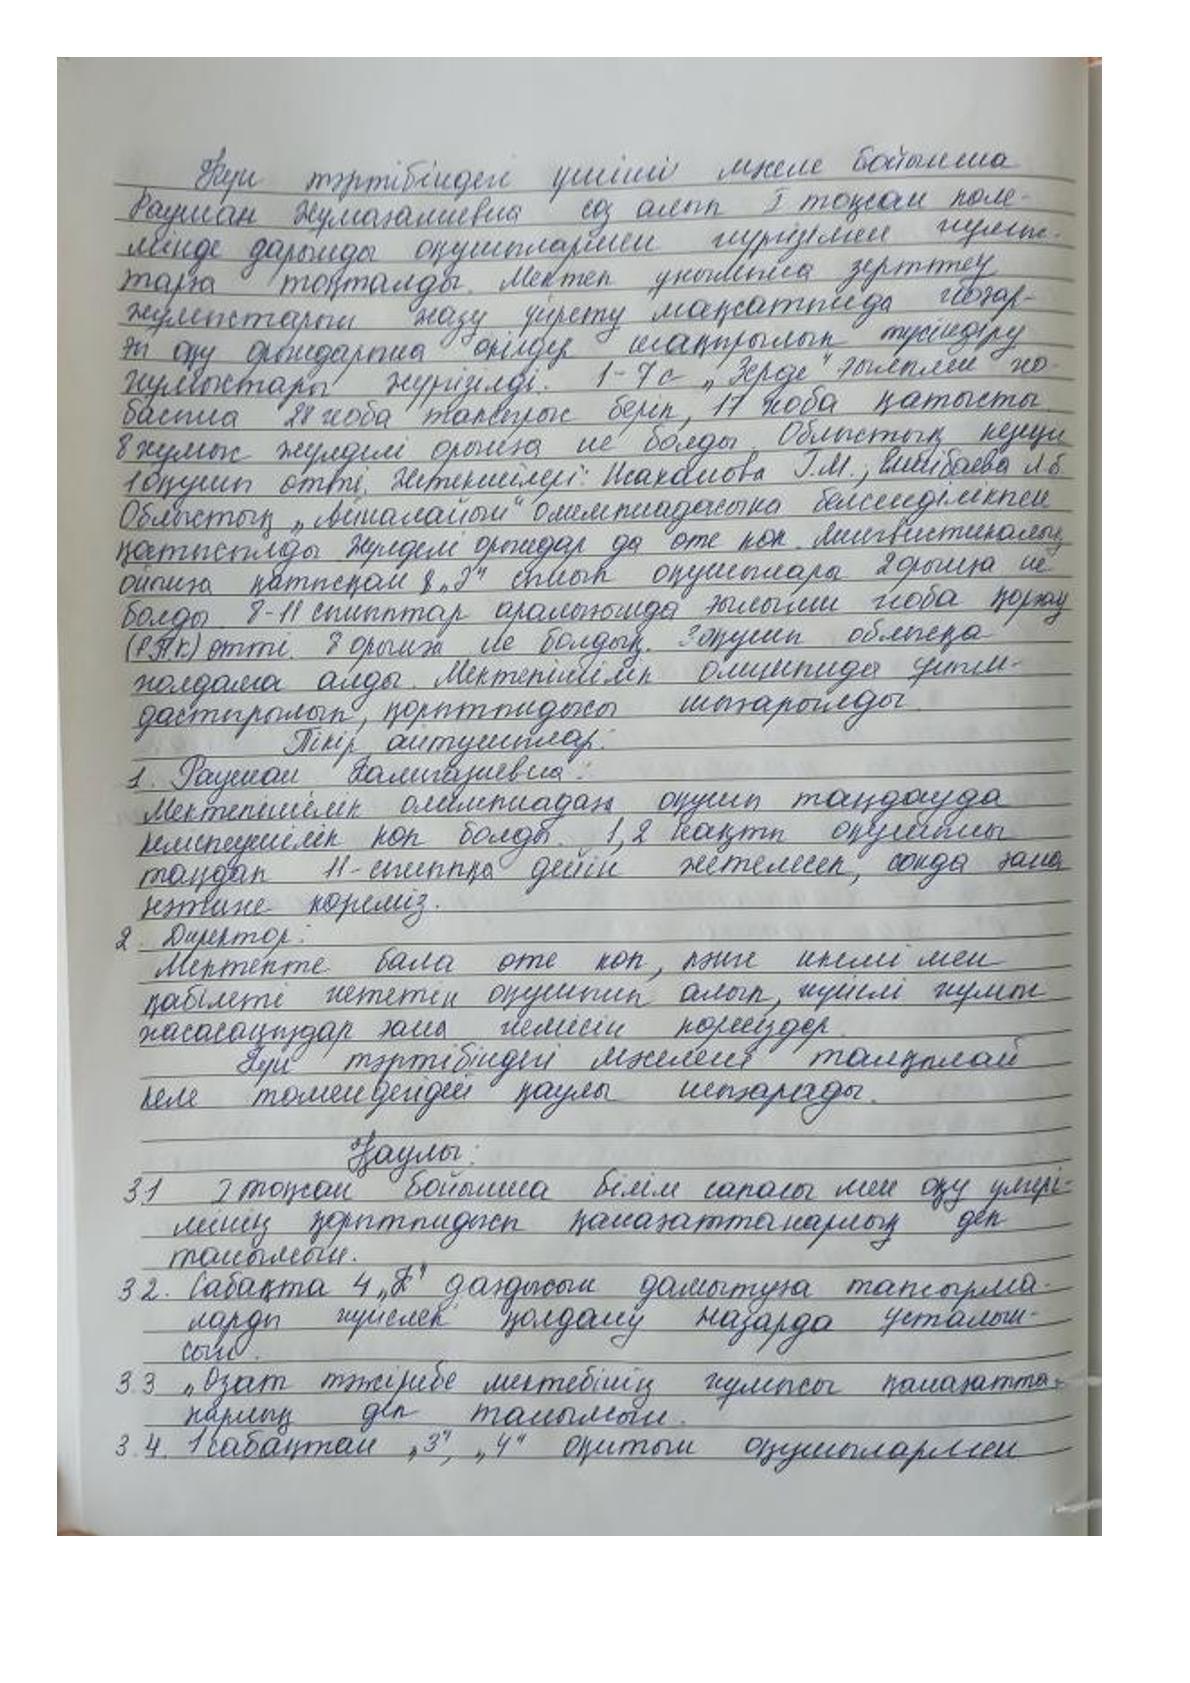 Күн тәртібіндегі үшінші мәселе бойынша
Раушан Жумағалиевна сөз алып I тоқсан көле-
мінде дарынды оқушылармен жүргізілген жұмыс-
тарға тоқталды. Мектеп ұжымына зерттеу
жұмыстарын жазу үйрету мақсатында жоғар-
ғы оқу орындарына өкілдер шақырылып түсіндіру
жұмыстары жүргізілді. 1-7 с „Зерде" ғылыми жо-
басына 28 жоба тапсырыс беріп, 17 жоба қатысты.
8 жұмыс жүлделі орынға ие болды. Облыстық кезеңге
1 оқушы өтті. Жетекшілері: Исаханова Г.М.,
Облыстық олимпиадасына белсенділікпен
қатысылды. Жүлделі орындар да өте көп. Лингвистикалық
ойынға қатысқан 8 „Г" сынып оқушылары 2 орынға ие
болды. 8-11 сыныптар аралығында ғылыми жоба қорғау
өтті. 8 орынға ие болдық. 3 оқушы облысқа
жолдама алды. Мектепішілік олимпиада ұйым-
дастырылып, қорытындысы шығарылды.
Пікір айтушылар:
1. Раушан Жалигазиевна:
Мектепішілік олимпиадаға оқушы таңдауда
кемшілік көп болды. 1,2 нақты оқушыны
таңдап 11-сыныпқа дейін жетелесек, сонда ғана
нәтиже көреміз.
2. Директор:
Мектепте бала өте көп, және икемі мен
қабілеті жететін оқушыны алып, жүйелі жұмыс
жасасаңыздар ғана жемісін көресіздер.
Күн тәртібіндегі мәселені талқылай
келе төмендегідей қаулы шығарады.
Қаулы:
3.1 I тоқсан бойынша білім сапасы мен оқу үлгері-
мінің қорытындысы қанағаттанарлық деп
танылсын.
3.2. Сабақта 4 „К" дағдысын дамытуға тапсырма-
ларды жүйелі қолдану назарда ұсталын-
сын.
3.3 „Озат тәжірибе мектебінің жұмысы қанағатта-
нарлық деп танылсын.
3.4. 1 сабақтан „3", „4" оқитын оқушылармен